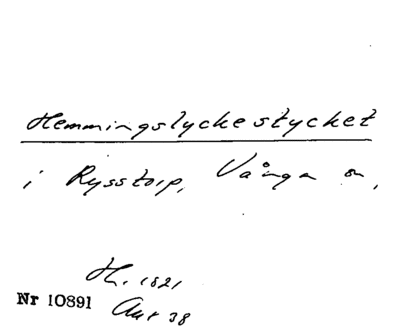 Hemmingslyckestycket
i Rysstorp, Vånga sn,
H. 1821
Nr 10891 Akt 38